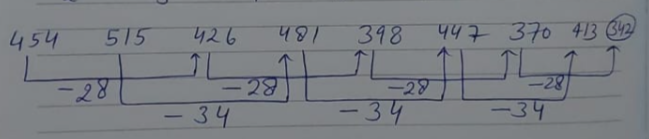 454 515 426 481 398 447 370 413 342
-28 -28 -28 -28
-34 -34 -34